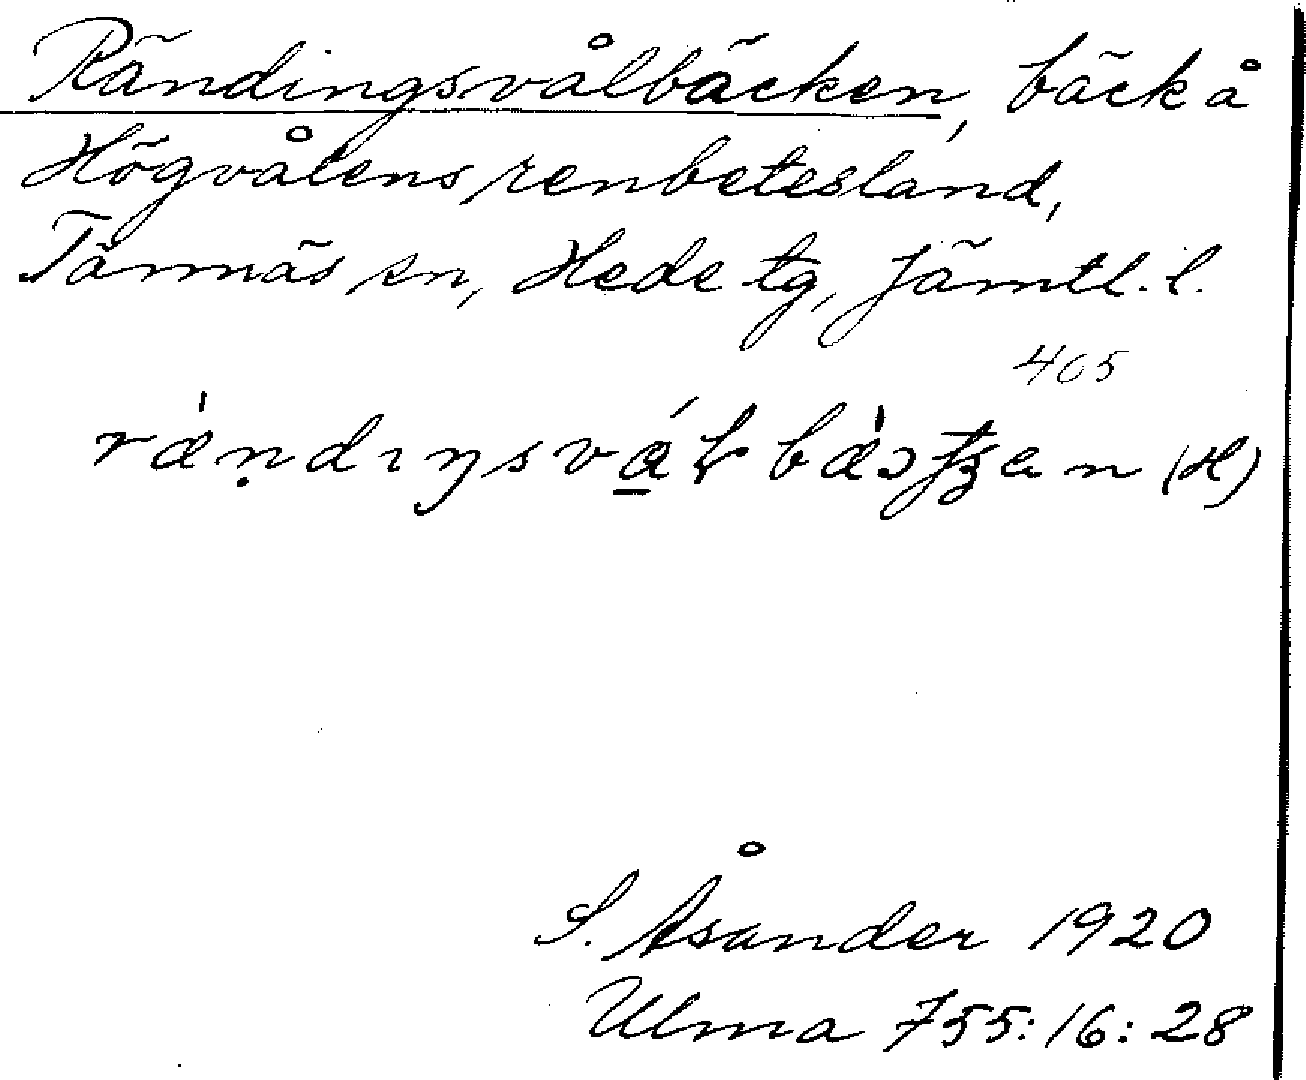 Rändingsvålbäcken, bäck å
Högvålens renbetesland,
Tännäs sn, Hede tg, Jämtl. l.
405
rændıŋsvaɫbæɔtʒɘn (H)
S. Åsander 1920
Ulma 755:16:28